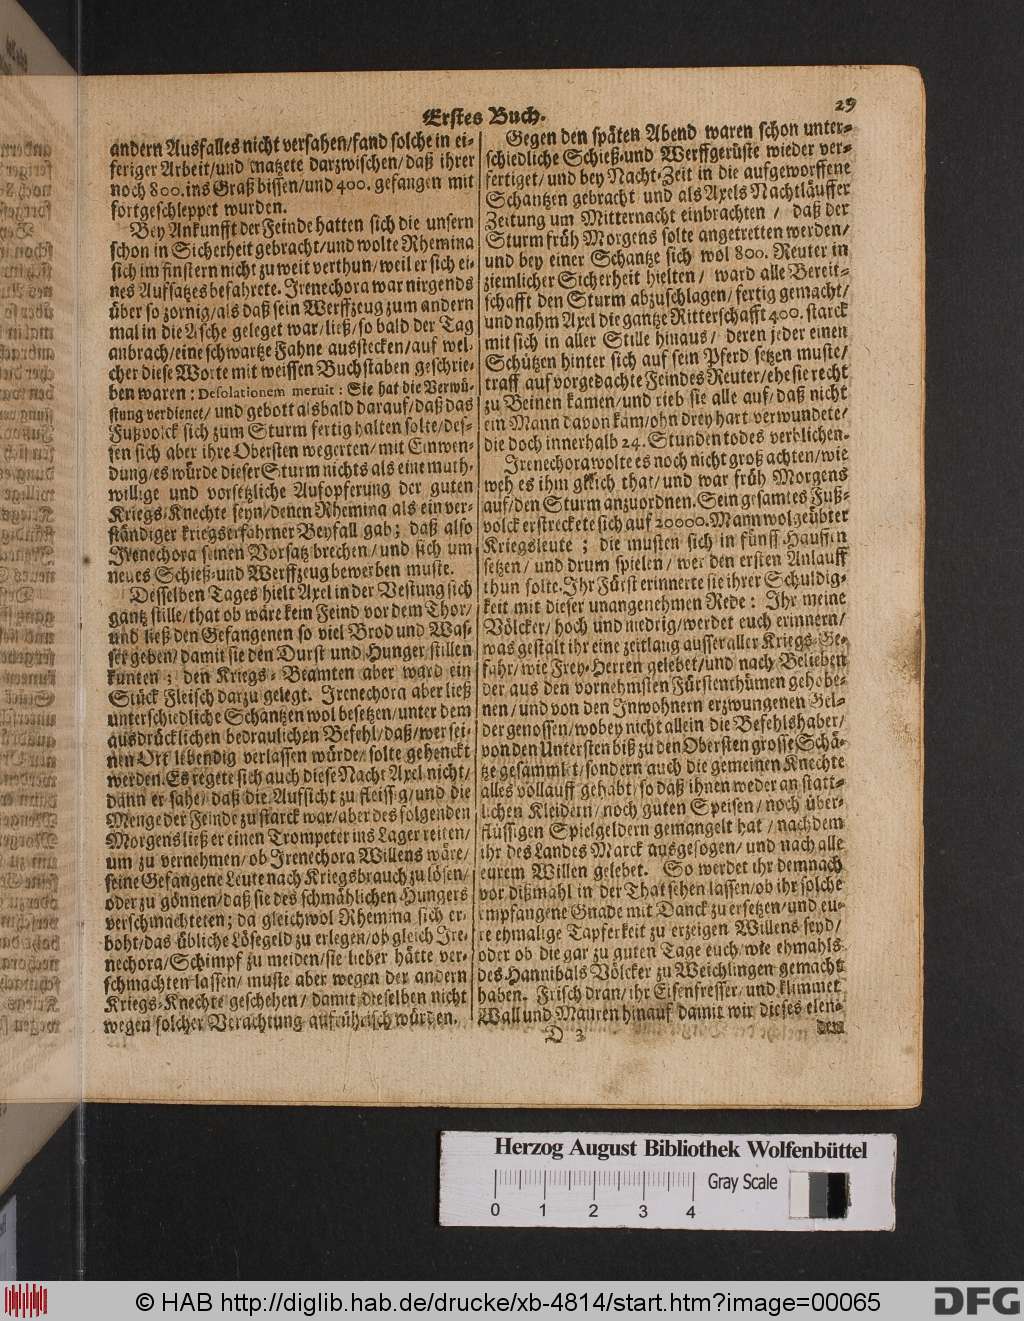 Erstes Buch.
29
andern Ausfalles nicht versahen/fand solche in ei-
feriger Arbeit/und matzete darzwischen/daß ihrer
noch 800. ins Graß bissen/und 400. gefangen mit
fortgeschleppet wurden.
Bey Ankunfft der Feinde hatten sich die unsern
schon in Sicherheit gebracht/und wolte Rhemina
sich im finstern nicht zu weit verthun/weil er sich ei-
nes Aufsatzes befahrete. Irenechora war nirgends
über so zornig/als daß sein Werffzeug zum andern
mal in die Asche geleget war/ließ/so bald der Tag
anbrach/eine schwartze Fahne ausstecken/auf wel-
cher diese Worte mit weissen Buchstaben geschrie-
ben waren: Desolationem meruit: Sie hat die Verwü-
stung verdienet/und gebott alsbald darauf/daß das
Fußvolck sich zum Sturm fertig halten solte/des-
sen sich aber ihre Obersten wegerten/mit Einwen-
dung/es würde dieser Sturm nichts als eine muth-
willige und vorsetzliche Aufopferung der guten
Kriegs-Knechte seyn/denen Rhemina als ein ver-
ständiger kriegserfahrner Beyfall gab; daß also
Irenechora seinen Vorsatz brechen/und sich um
neues Schieß-und Werffzeug bewerben muste.
Desselben Tages hielt Axel in der Vestung sich
gantz stille/that ob wäre kein Feind vor dem Thor/
und ließ den Gefangenen so viel Brod und Was-
ser geben/damit sie den Durst und Hunger stillen
kunten; den Kriegs-Beamten aber ward ein
Stück Fleisch darzu gelegt. Irenechora aber ließ
unterschiedliche Schantzen wol besetzen/unter dem
ausdrücklichen bedraulichen Befehl/daß/wer sei-
nen Ort lebendig verlassen würde/solte gehenckt
werden. Es regete sich auch diese Nacht Axel nicht/
dann er sahe/daß die Aufsicht zu fleissig/und die
Menge der Feinde zu starck war/aber des folgenden
Morgens ließ er einen Trompeter ins Lager reiten/
um zu vernehmen/ob Irenechora Willens wäre/
seine Gefangene Leute nach Kriegsbrauch zu lösen/
oder zu gönnen/daß sie des schmählichen Hungers
verschmachteten; da gleichwol Rhemina sich er-
boht/das übliche Lösegeld zu erlegen/ob gleich Ire-
nechora/Schimpf zu meiden/sie lieber hätte ver-
schmachten lassen/muste aber wegen der andern
Kriegs-Knechte geschehen/damit dieselben nicht
wegen solcher Verachtung aufrührisch würden.
Gegen den späten Abend waren schon unter-
schiedliche Schieß-und Werffgerüste wieder ver-
fertiget/und bey Nacht-Zeit in die aufgeworffene
Schantzen gebracht und als Axels Nachtläuffer
Zeitung um Mitternacht einbrachten/daß der
Sturm früh Morgens solte angetretten werden/
und bey einer Schantze sich wol 800. Reuter in
ziemlicher Sicherheit hielten/ward alle Bereit-
schafft den Sturm abzuschlagen/fertig gemacht/
und nahm Axel die gantze Ritterschafft 400. starck
mit sich in aller Stille hinaus/deren jeder einen
Schützen hinter sich auf sein Pferd setzen muste/
traff auf vorgedachte Feindes Reuter/ehe sie recht
zu Beinen kamen/und rieb sie alle auf/daß nicht
ein Mann davon kam/ohn drey hart verwundete/
die doch innerhalb 24. Stunden todes verblichen.
Irenechora wolte es noch nicht groß achten/wie
weh es ihm gleich that/und war früh Morgens
auf/den Sturm anzuordnen. Sein gesamtes Fuß-
volck erstreckete sich auf 20000. Mann wolgeübter
Kriegsleute; die musten sich in fünff Hauffen
setzen/und drum spielen/wer den ersten Anlauff
thun solte. Ihr Fürst erinnerte sie ihrer Schuldig-
keit mit dieser unangenehmen Rede: Ihr meine
Völcker/hoch und niedrig/werdet euch erinnern/
was gestalt ihr eine zeitlang ausser aller Kriegs-Ge-
fahr/wie Frey-Herren gelebet/und nach Belieben
der aus den vornehmsten Fürstenthümen gehobe-
nen/und von den Inwohnern erzwungenen Gel-
der genossen/wobey nicht allein die Befehlshaber/
von den Untersten biß zu den Obersten grosse Schä-
tze gesammlet/sondern auch die gemeinen Knechte
alles vollauff gehabt/so daß ihnen weder an statt-
lichen Kleidern/noch guten Speisen/noch über-
flüssigen Spielgeldern gemangelt hat/nachdem
ihr des Landes Marck ausgesogen/und nach alle
eurem Willen gelebet. So werdet ihr demnach
vor dißmahl in der That sehen lassen/ob ihr solche
empfangene Gnade mit Danck zu ersetzen/und eu-
re ehmalige Tapferkeit zu erzeigen Willens seyd/
oder ob die gar zu guten Tage euch/wie ehmahls
des Hannibals Völcker zu Weichlingen gemacht
haben. Frisch dran/ihr Eisenfresser/und klimmet
Wall und Mauren hinauf damit wir dieses elen-
D 3
den
Herzog August Bibliothek Wolfenbüttel
Gray Scale
0 1 2 3 4
© HAB http://diglib.hab.de/drucke/xb-4814/start.htm?image=00065
DFG